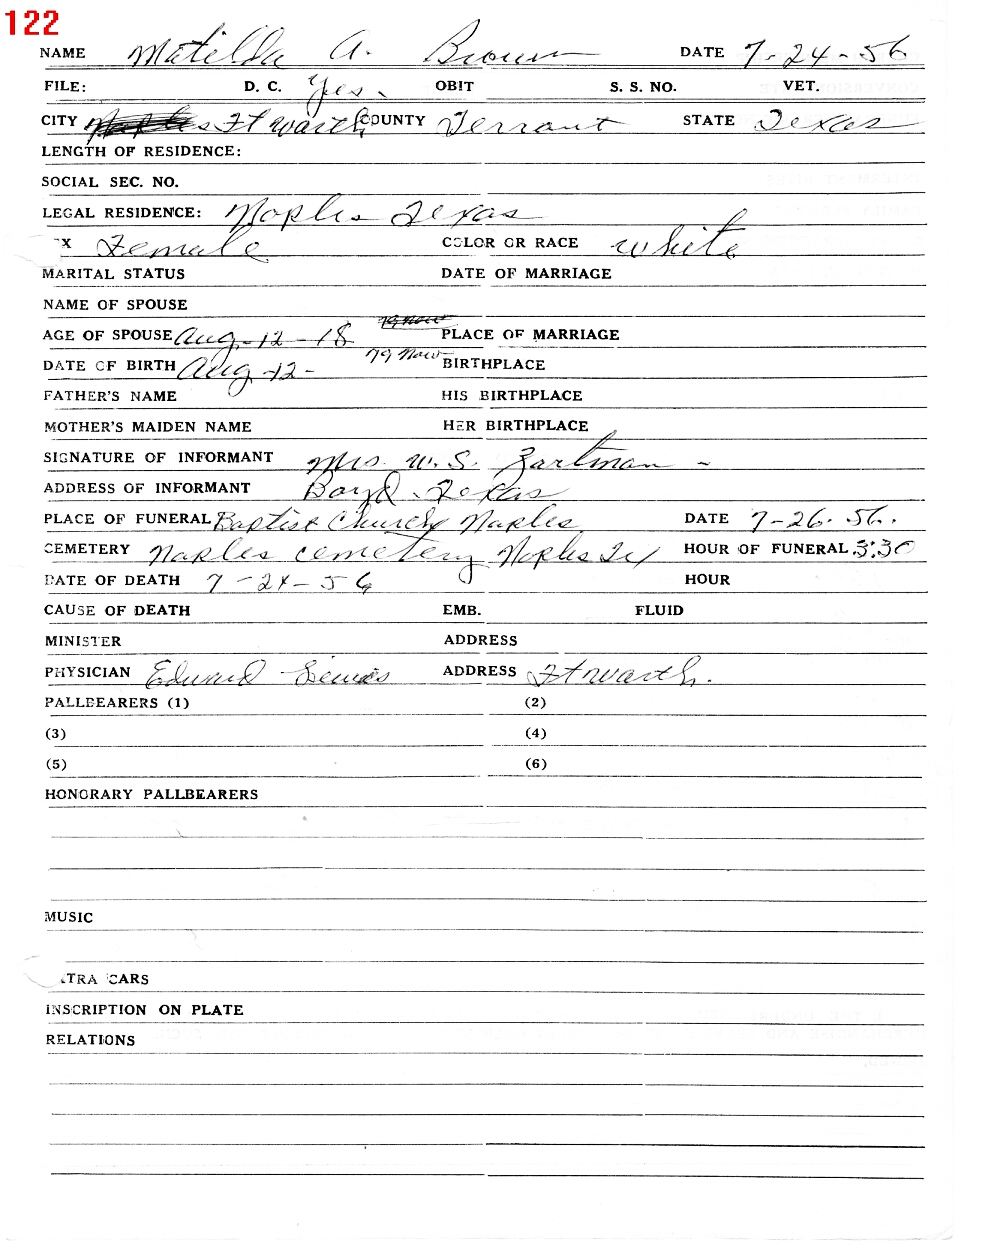 122
NAME Matilda A. Brown DATE 7-24-56
FILE: D. C. Yes. OBIT S. S. NO. VET.
CITY Naples Ft Warth COUNTY Terrant STATE Texas
LENGTH OF RESIDENCE:
SOCIAL SEC. NO.
LEGAL RESIDENCE: Naples Texas
X Female COLOR OR RACE white
MARITAL STATUS DATE OF MARRIAGE
NAME OF SPOUSE
79 now
AGE OF SPOUSE Aug-12-18 PLACE OF MARRIAGE
DATE OF BIRTH Aug-12- 79 now BIRTHPLACE
FATHER'S NAME HIS BIRTHPLACE
MOTHER'S MAIDEN NAME HER BIRTHPLACE
SIGNATURE OF INFORMANT Mrs. W. S. Zartman -
ADDRESS OF INFORMANT Boyd. Texas
PLACE OF FUNERAL Baptist Church Naples DATE 7-26-56.
CEMETERY Naples cemetery Naples Tex HOUR OF FUNERAL 3:30
DATE OF DEATH 7-24-56 HOUR
CAUSE OF DEATH EMB. FLUID
MINISTER ADDRESS
PHYSICIAN Edward Lewis ADDRESS Ft warth.
PALLBEARERS (1) (2)
(3) (4)
(5) (6)
HONORARY PALLBEARERS
MUSIC
TRA CARS
INSCRIPTION ON PLATE
RELATIONS